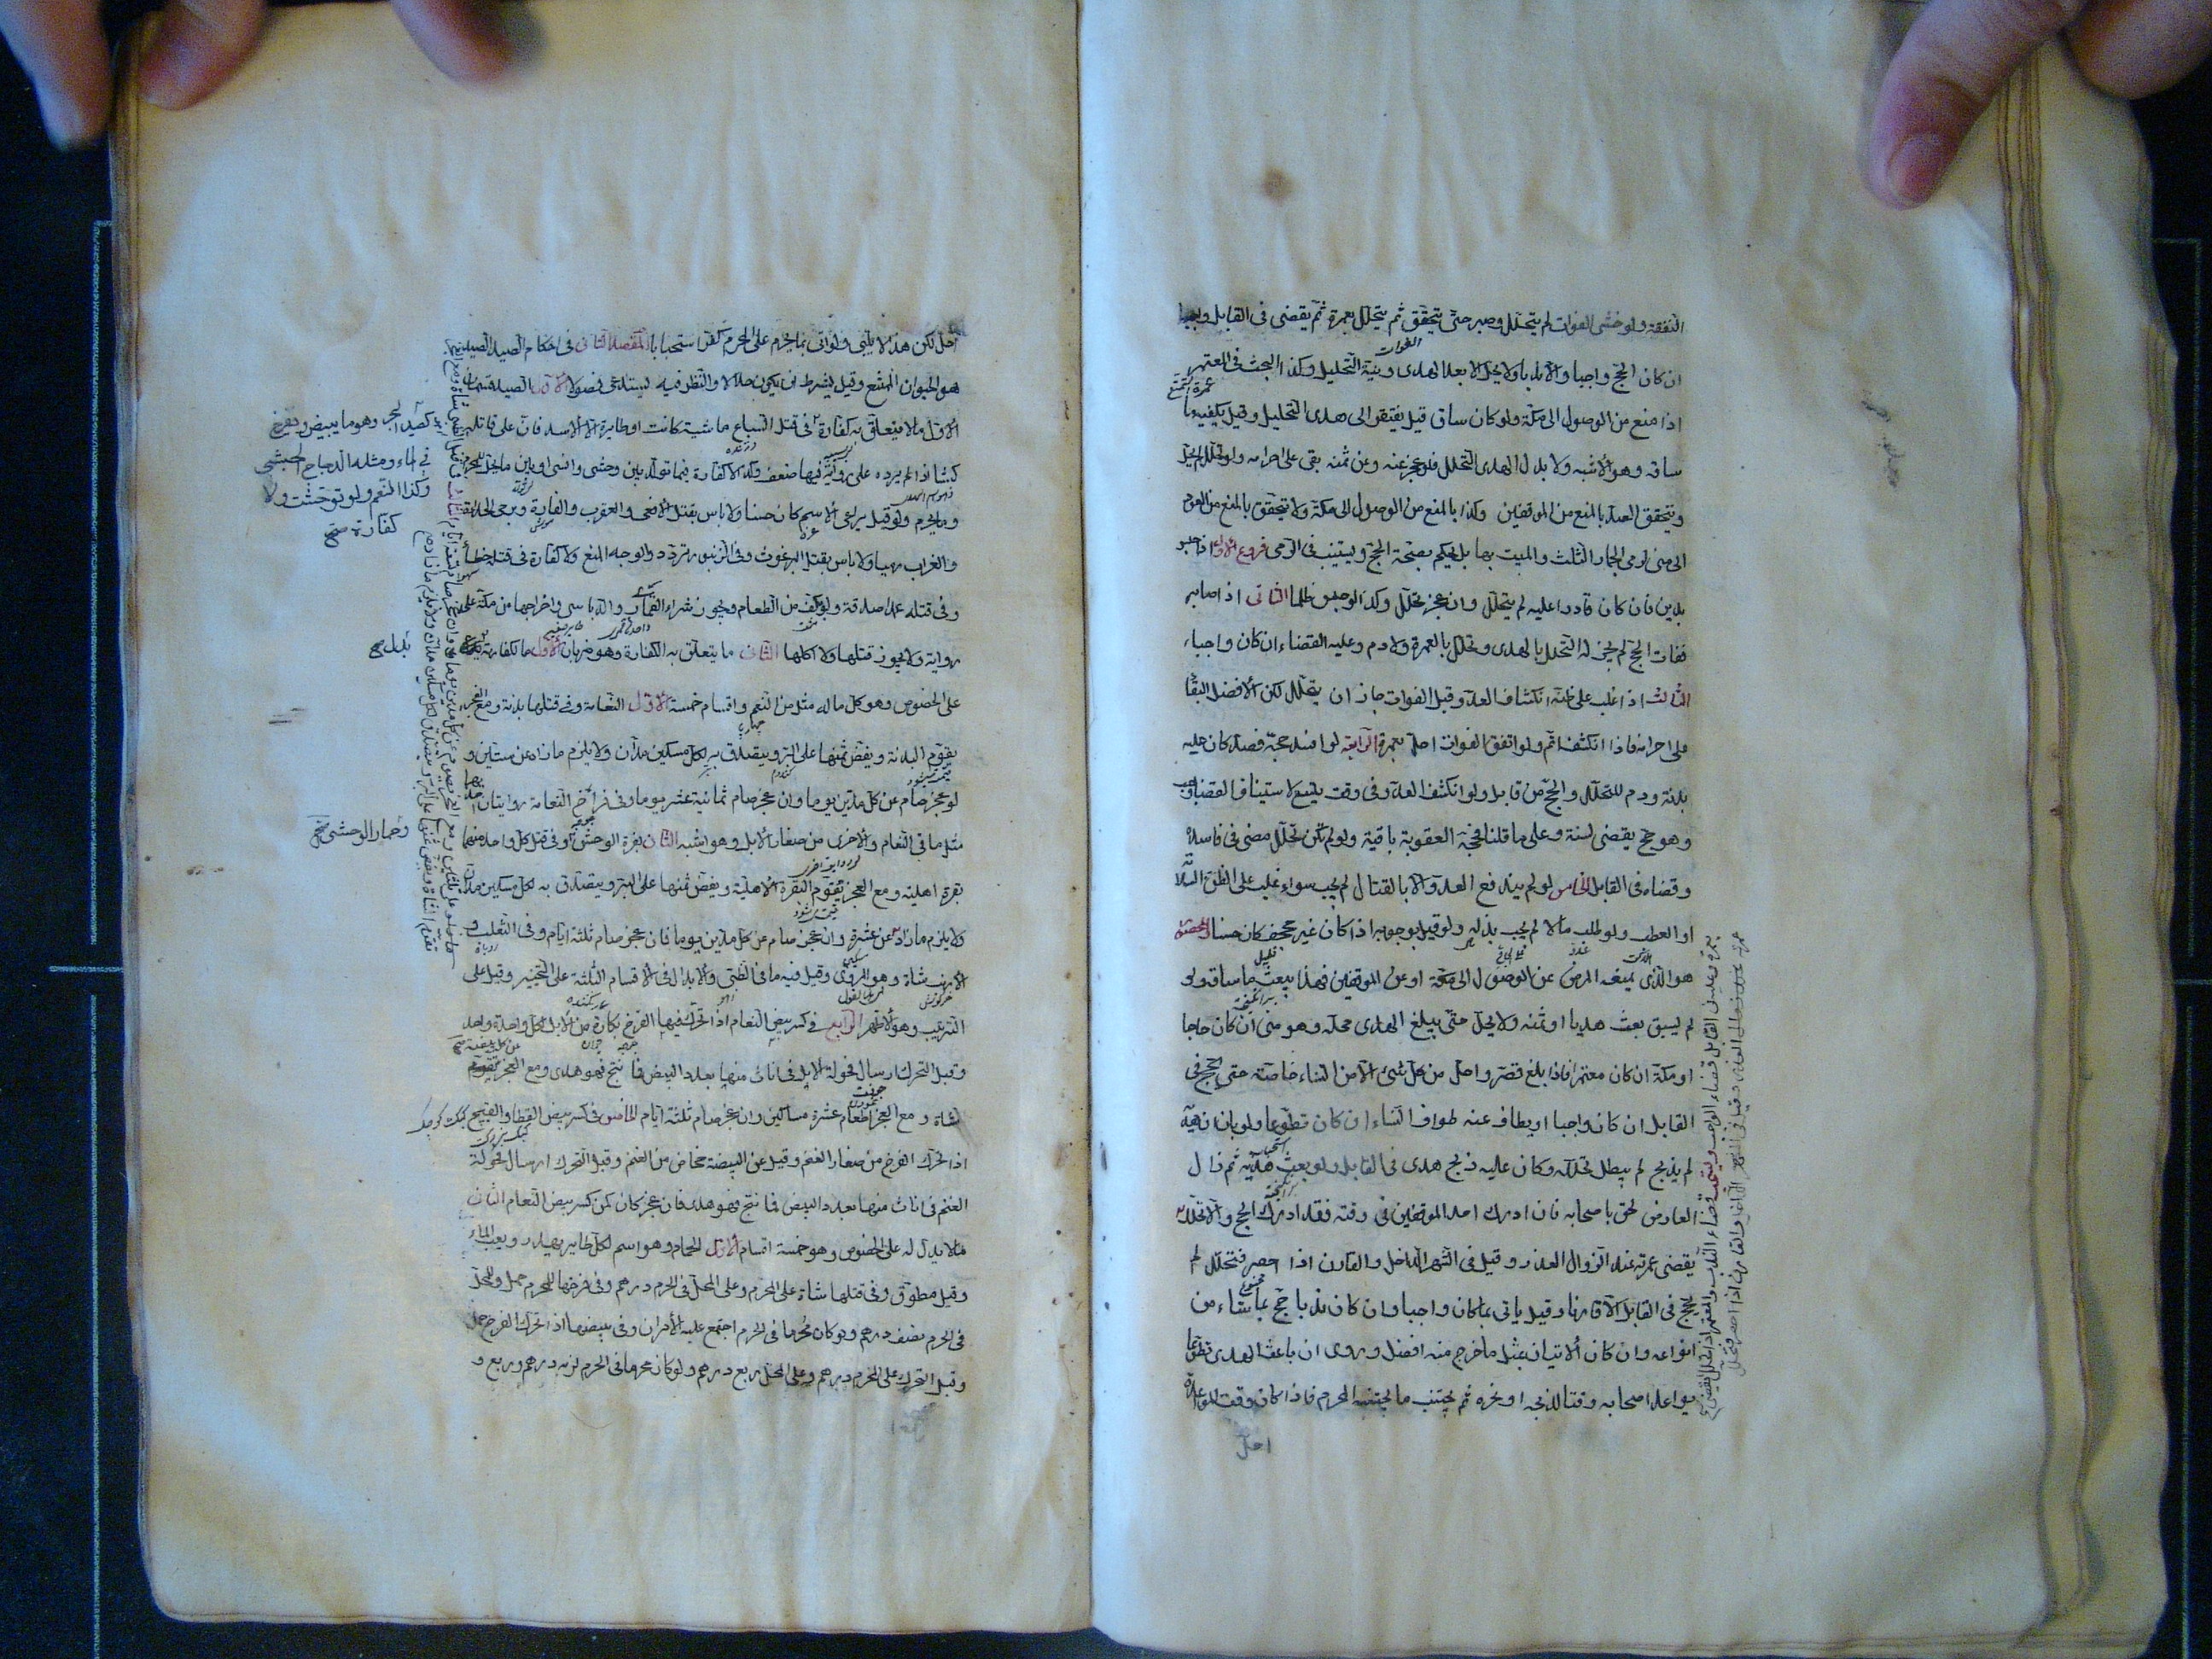 النفقة ولو خشى الفوات لم يتحلل وصبر حتى يتحقق ثم يتحلل بعمرة ثم يقضى فى القابل وجوبا
ان كان الحج واجبا والا ندبا ولا يحل الا بعد الهدى ونية التحليل وكذا البحث فى المعتمر
اذا منع من الوصول الى مكة ولو كان ساق قيل يفتقر الى هدى التحليل وقيل يكفيه ما
ساقه وهو الاشبه ولا بدل الهدى التحلل فلو عجز عنه وعن ثمنه بقى على احرامه ولو تحلل لم يحل
ويتحقق الصد بالمنع من الموقفين وكذا بالمنع من الوصول الى مكة ولا يتحقق بالمنع من العود
الى منى لرمى الجمار الثلث والمبيت بها بل يحكم بصحة الحج ويستنيب فى الرمى فروع الاول اذا حبس
بدين فان كان قادرا عليه لم يتحلل وان عجز تحلل وكذا لو حبس ظلما الثانى اذا صابر
ففات الحج لم يجز له التحلل بالهدى وتحلل بالعمرة ولا دم وعليه القضاء ان كان واجبا
الثالث اذا غلب على ظنه انكشاف العدو قبل الفوات جاز ان يتحلل لكن الافضل البقاء
على احرامه فاذا انكشف اتم ولو اتفق الفوات احل بعمرة الرابعة لو افسد حجه فصد كان عليه
بدنة ودم للتحلل والحج من قابل ولو انكشف العدو فى وقت يتسع لاستيناف القضاء وجب
وهو حج يقضى لسنة وعلى ما قلنا فحجة العقوبة باقية ولو لم يكن تحلل مضى فى فاسده
وقضاه فى القابل الخامس لو لم يندفع العدو الا بالقتال لم يجب سواء غلب على الظن السلامة
او العطب ولو طلب مالا لم يجب بذله ولو قيل بوجوبه اذا كان غير مجحف كان حسنا والمحصر
هو الذى يمنعه المرض عن الوصول الى مكة او عن الموقفين فهذا يبعث ما ساقه ولو
لم يسق بعث هديا او ثمنه ولا يحل حتى يبلغ الهدى محله وهو منى ان كان حاجا
او مكة ان كان معتمرا فاذا بلغ قصر واحل من كل شىء الا من النساء خاصة حتى يحج فى
القابل ان كان واجبا او يطاف عنه طواف النساء ان كان تطوعا ولو بان انه
لم يذبح لم يبطل تحلله وكان عليه ذبح هدى فى القابل ولو بعث هديه ثم زال
العارض لحق باصحابه فان ادرك احد الموقفين فى وقته فقد ادرك الحج والا تحلل
يقضى عمرته عند زوال العذر وقيل فى الشهر الداخل والقارن اذا احصر فتحلل لم
يحج فى القابل الا قارنا وقيل ياتى بما كان واجبا وان كان ندبا حج بما شاء من
انواعه وان كان الاتيان بمثل ما خرج منه افضل وروى ان باعث الهدى تطوعا
يواعد اصحابه وقتا لذبحه او نحره ثم يجتنب ما يجتنبه المحرم فاذا كان وقت المواعدة
احل
احل لكن هذا لا يلبى ولو اتى بما يحرم على المحرم كفر استحبابا المقصد الثانى فى احكام الصيد الصيد
هو الحيوان الممتنع وقيل يشترط ان يكون حلالا والنظر فيه يستدعى فصولا الاول الصيد قسمان
الاول ما لا يتعلق به كفارة فى قتل السباع ماشية كانت او طايرة الا الاسد فان على قاتله
كبشا اذا لم يرده على رواية فيها ضعف وكذا لا كفارة فيما تولد بين وحشى وانسى او بين ما يحل للمحرم
وما يحرم ولو قيل يراعى الاسم كان حسنا ولا باس بقتل الافعى والعقرب والفارة وبرمى الحداة
والغراب رميا ولا باس بقتل البرغوث وفى الزنبور تردد والوجه المنع ولا كفارة فى قتله خطأ
وفى قتله عمدا صدقة ولو بكف من الطعام ويجوز شراء القمارى والدباسى واخراجها من مكة على
رواية ولا يجوز قتلها ولا اكلها الثانى ما يتعلق به الكفارة وهو ضربان الاول ما لكفارته بدل
على الخصوص وهو كل ما له مثل من النعم واقسامه خمسة الاول النعامة وفى قتلها بدنة ومع العجز
يقوم البدنة ويفض ثمنها على البر ويتصدق به لكل مسكين مدان ولا يلزم ما زاد عن ستين و
لو عجز صام عن كل مدين يوما وان عجز صام ثمانية عشر يوما وفى فراخ النعامة روايتان احدهما
مثل ما فى النعام والاخرى من صغار الابل وهو اشبه الثانى بقرة الوحش وفى قتل كل واحد منهما
بقرة اهلية ومع العجز يقوم البقرة الاهلية ويفض ثمنها على البر ويتصدق به لكل مسكين مدان
ولا يلزم ما زاد عن عشرة وان عجز صام عن كل مدين يوما فان عجز صام ثلثة ايام وفى الثعلب و
الارنب شاة وهو المروى وقيل فيه ما فى الظبى والابدال فى الاقسام الثلثة على التخيير وقيل على
الترتيب وهو الاظهر الرابع فى كسر بيض النعام اذا تحرك فيها الفرخ بكارة من الابل لكل واحدة واحد
وقبل التحرك ارسال فحولة الابل فى اناث منها بعدد البيض فما نتج فهو هدى ومع العجز
شاة ومع العجز اطعام عشرة مساكين وان عجز صام ثلثة ايام الخامس فى كسر بيض القطا والقبج
اذا تحرك الفرخ من صغار الغنم وقيل عن البيضة مخاض من الغنم وقبل التحرك ارسال فحولة
الغنم فى اناث منها بعدد البيض فما نتج فهو هدى فان عجز كان كمن كسر بيض النعام الثانى
ما لا بدل له على الخصوص وهو خمسة اقسام الاول الحمام وهو اسم لكل طاير يهدر ويعب الماء
وقيل مطوق وفى قتلها شاة على المحرم وعلى المحل فى الحرم درهم وفى فرخها للمحرم حمل وللمحل
فى الحرم نصف درهم ولو كان محرما فى الحرم اجتمع عليه الامران وفى بيضها اذا تحرك الفرخ حمل
وقبل التحرك على المحرم درهم وعلى المحل ربع درهم ولو كان محرما فى الحرم لزمه درهم وربع و
كصيد البحر وهو ما يبيض ويفرخ
فى الماء ومثله الدجاج الحبشى
وكذا النعم ولو توحشت ولا
كفارة صح
بدل صح
وحمار الوحشى صح